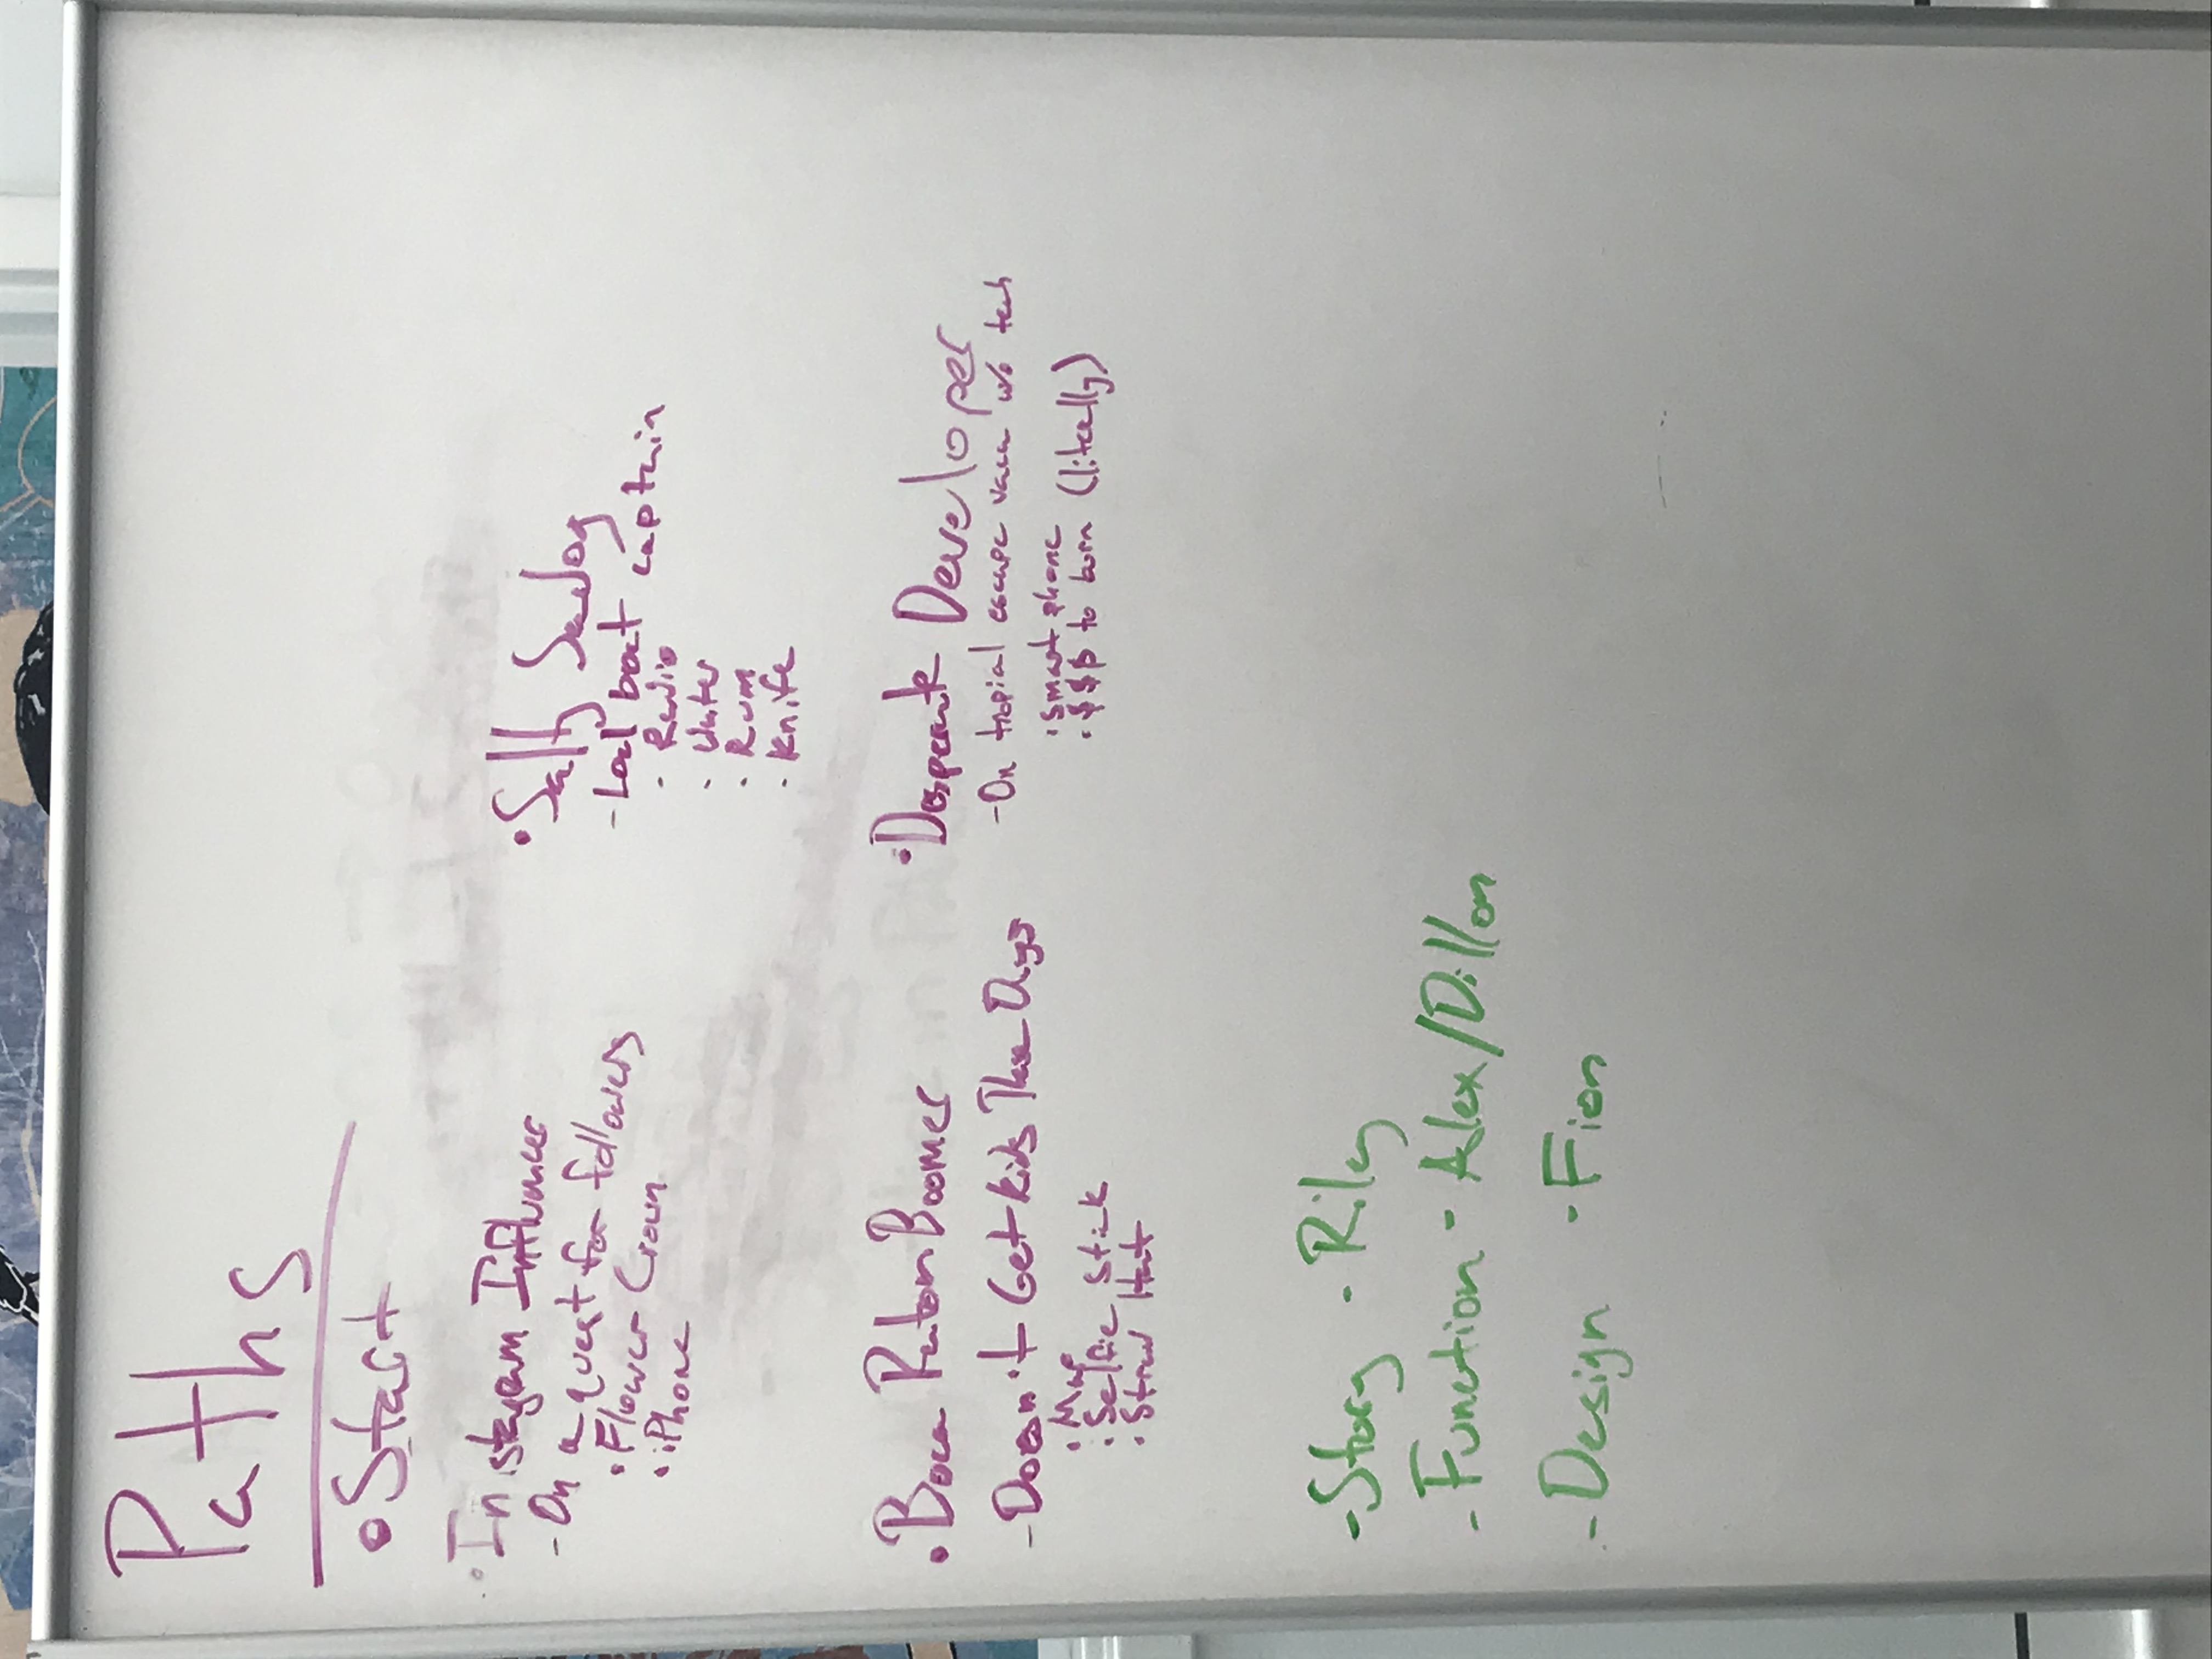 Paths
• Start
• Instagram Influencer
- On a quest for followers
• Flower Crown
• iPhone
• Salty Seadog
- Local boat captain
- Radio
- Water
- Rum
- Knife
• Boca Raton Boomer
- Doesn't Get Kids These Days
• Map
• Selfie Stick
• Straw Hat
• Desperate Developer
- On tropial escape vacay w/o tech
• smart phone
• $$$ to burn (literally)
- Story - Riley
- Function - Alex/Dillon
- Design - Fion